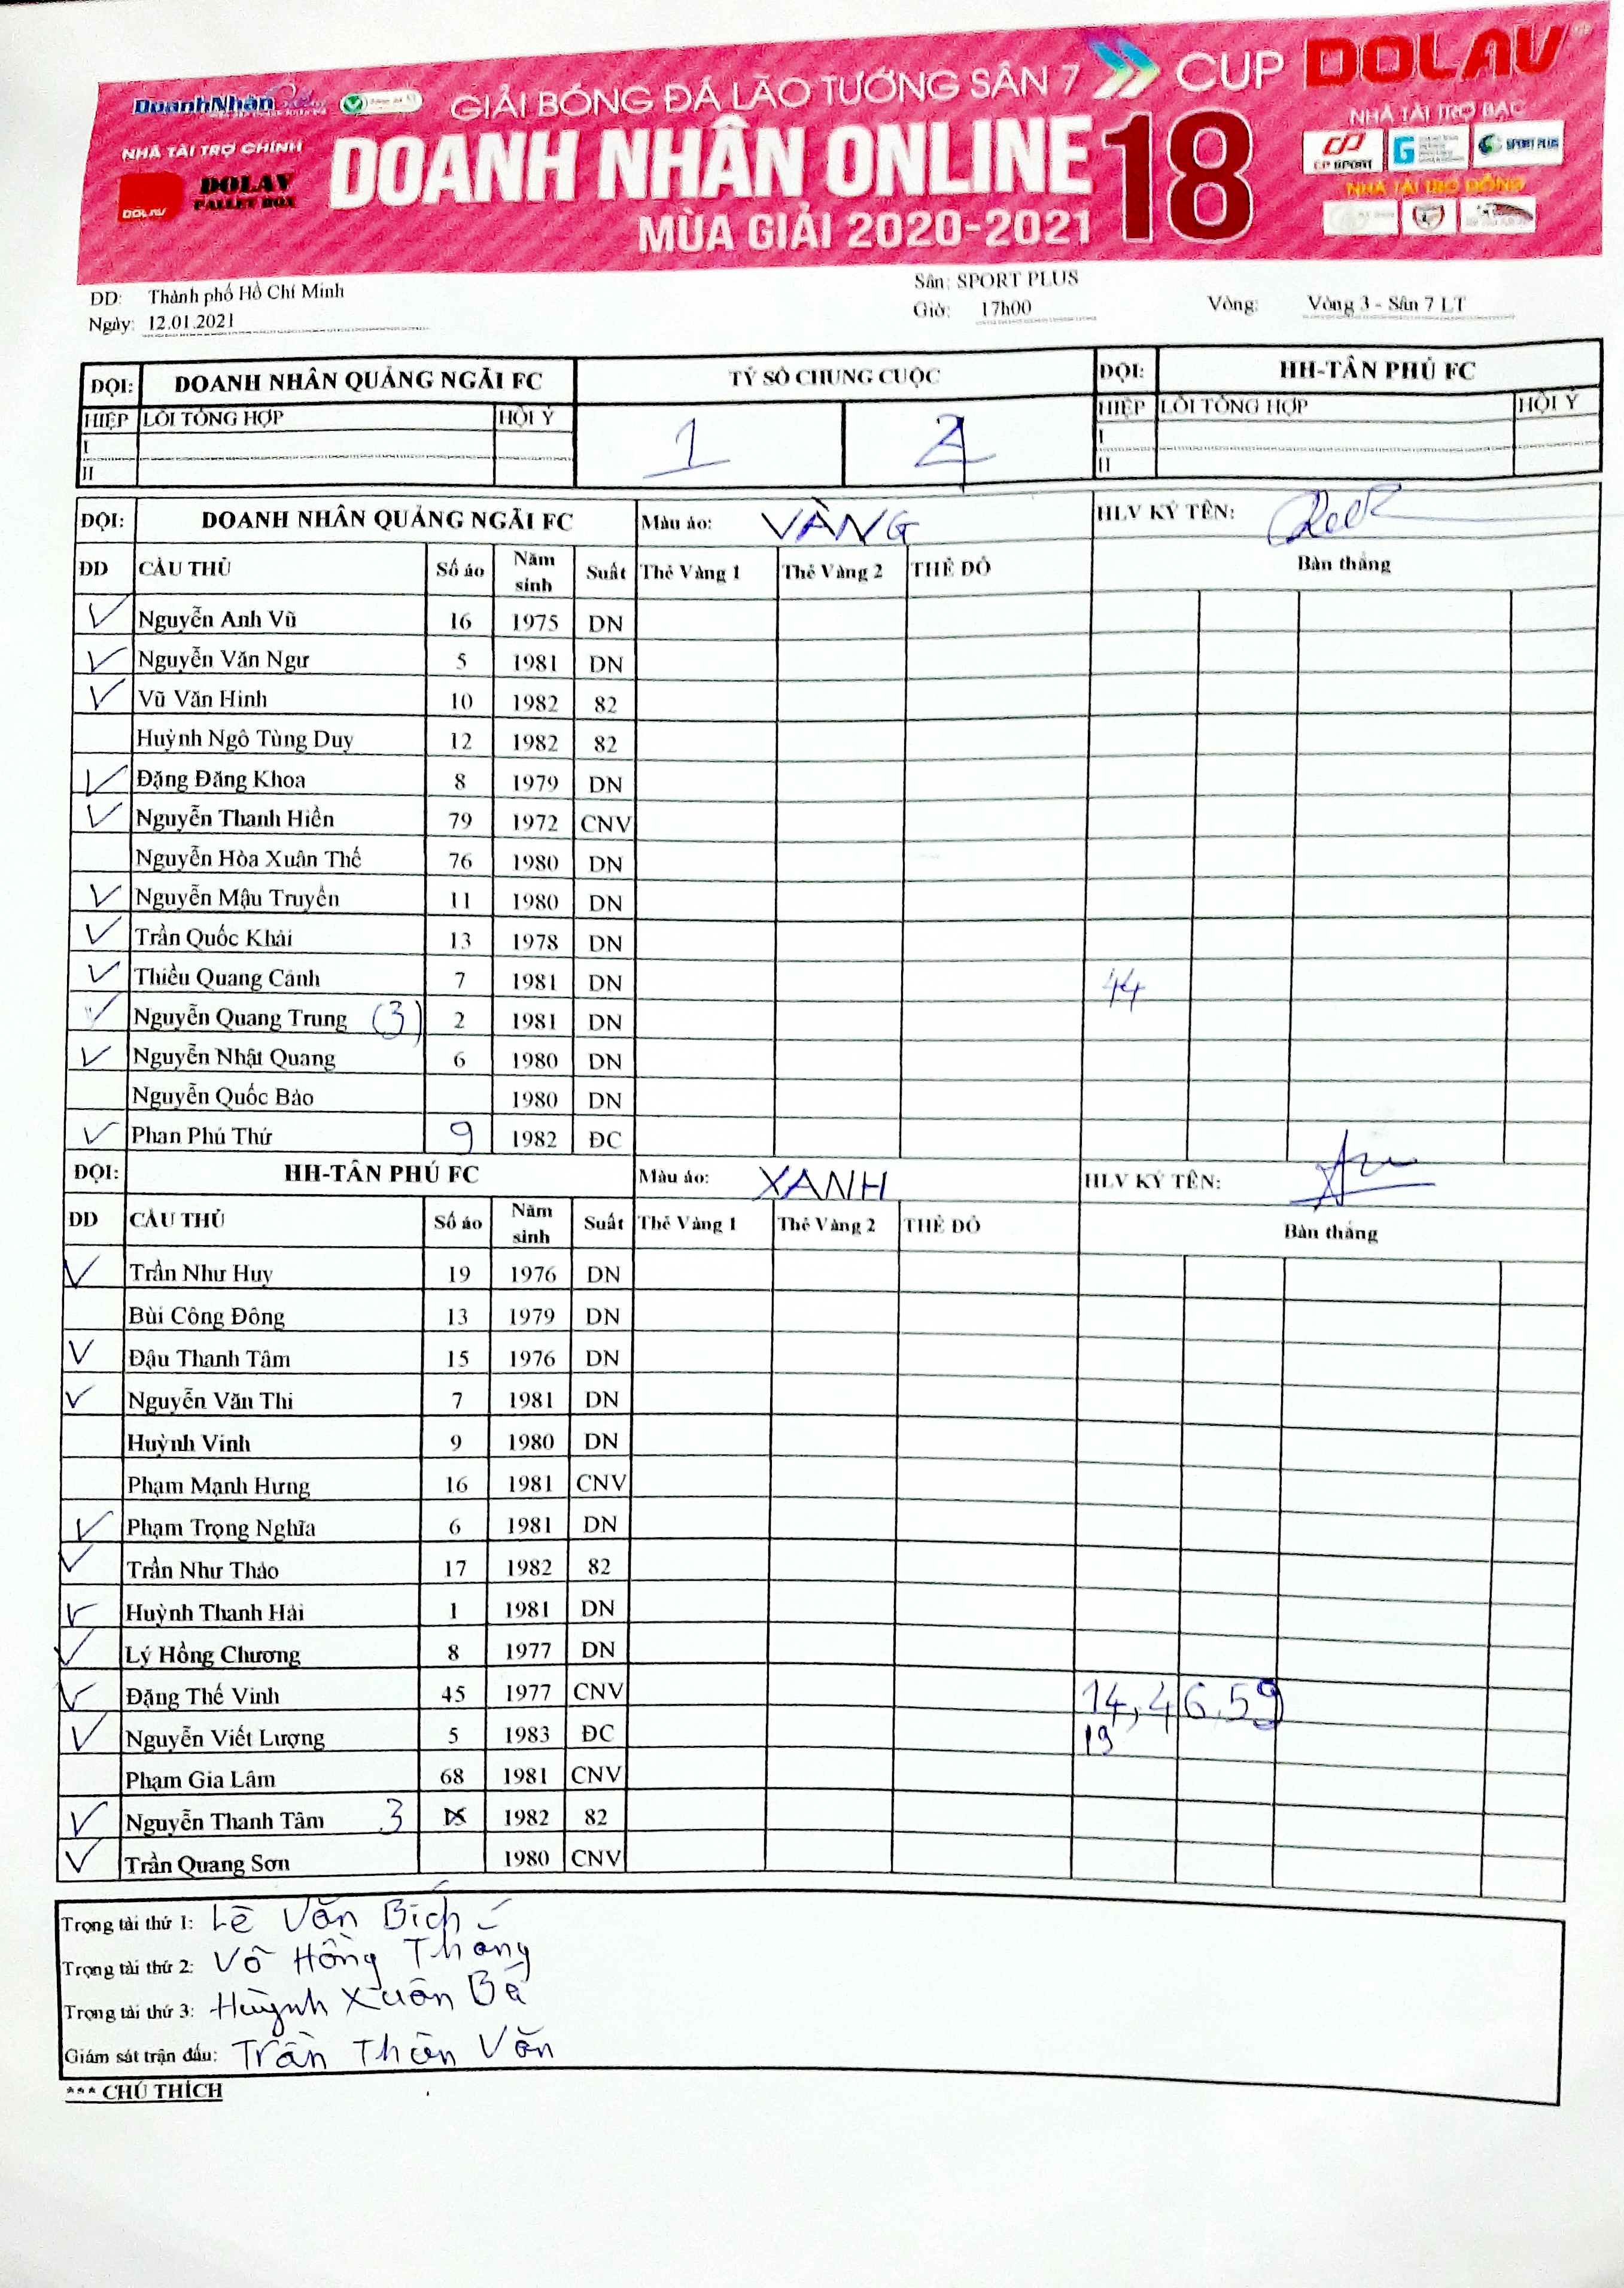 DoanhNhân
GIẢI BÓNG ĐÁ LÃO TƯỚNG SÂN 7 CUP DOLAV
NHÀ TÀI TRỢ CHÍNH
DOLAV
DOLAV
PALLET BOX
DOANH NHÂN ONLINE 18
MÙA GIẢI 2020-2021
NHÀ TÀI TRỢ BẠC
CP SPORT
SPORT PLUS
NHÀ TÀI TRỢ ĐỒNG
ĐD: Thành phố Hồ Chí Minh Sân: SPORT PLUS
Ngày: 12.01.2021 Giờ: 17h00 Vòng: Vòng 3 - Sân 7 LT
ĐỘI: DOANH NHÂN QUẢNG NGÃI FC TỶ SỐ CHUNG CUỘC ĐỘI: HH-TÂN PHÚ FC
HIỆP LỖI TỔNG HỢP HỘI Ý 1 HIỆP LỖI TỔNG HỢP HỘI Ý
I I
II II
ĐỘI: DOANH NHÂN QUẢNG NGÃI FC Màu áo: VÀNG HLV KÝ TÊN:
ĐD CẦU THỦ Số áo Năm sinh Suất Thẻ Vàng 1 Thẻ Vàng 2 THẺ ĐỎ Bàn thắng
V Nguyễn Anh Vũ 16 1975 DN
V Nguyễn Văn Ngư 5 1981 DN
V Vũ Văn Hinh 10 1982 82
Huỳnh Ngô Tùng Duy 12 1982 82
V Đặng Đăng Khoa 8 1979 DN
V Nguyễn Thanh Hiền 79 1972 CNV
Nguyễn Hòa Xuân Thế 76 1980 DN
V Nguyễn Mậu Truyền 11 1980 DN
V Trần Quốc Khải 13 1978 DN
V Thiều Quang Cảnh 7 1981 DN 44
V Nguyễn Quang Trung (3) 2 1981 DN
V Nguyễn Nhật Quang 6 1980 DN
Nguyễn Quốc Bảo 1980 DN
V Phan Phú Thứ 9 1982 ĐC
ĐỘI: HH-TÂN PHÚ FC Màu áo: XANH HLV KÝ TÊN:
ĐD CẦU THỦ Số áo Năm sinh Suất Thẻ Vàng 1 Thẻ Vàng 2 THẺ ĐỎ Bàn thắng
V Trần Như Huy 19 1976 DN
Bùi Công Đông 13 1979 DN
V Đậu Thanh Tâm 15 1976 DN
V Nguyễn Văn Thi 7 1981 DN
Huỳnh Vinh 9 1980 DN
Phạm Mạnh Hưng 16 1981 CNV
V Phạm Trọng Nghĩa 6 1981 DN
V Trần Như Thảo 17 1982 82
V Huỳnh Thanh Hải 1 1981 DN
V Lý Hồng Chương 8 1977 DN
V Đặng Thế Vinh 45 1977 CNV 14, 46, 59
V Nguyễn Viết Lượng 5 1983 ĐC 19
Phạm Gia Lâm 68 1981 CNV
V Nguyễn Thanh Tâm 3 1982 82
V Trần Quang Sơn 1980 CNV
Trọng tài thứ 1: Lê Văn Bích
Trọng tài thứ 2: Võ Hồng Thắng
Trọng tài thứ 3: Huỳnh Xuân Bá
Giám sát trận đấu: Trần Thiên Văn
*** CHÚ THÍCH